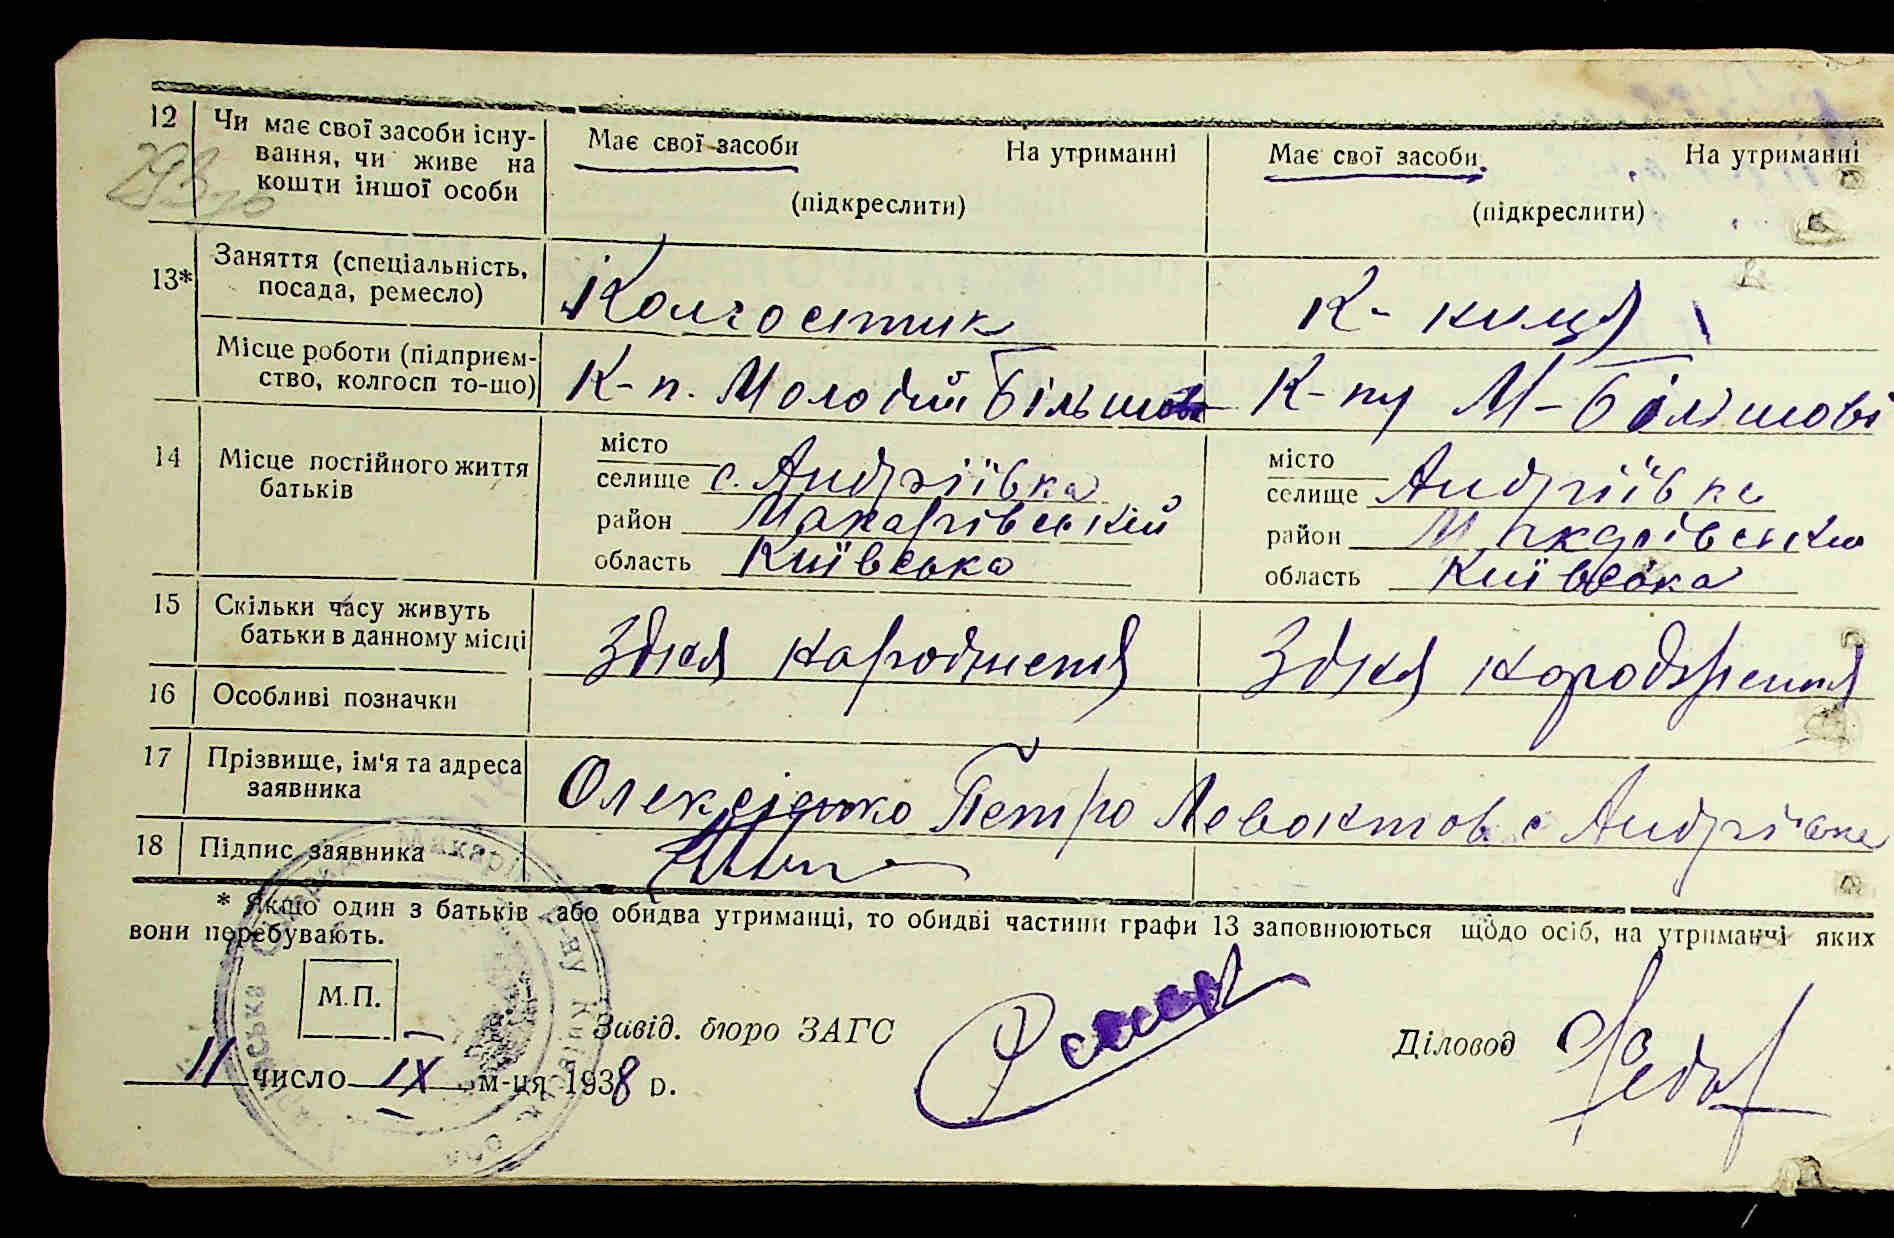 12 Чи має свої засоби існу-
вання, чи живе на
кошти іншої особи
Має свої засоби На утриманні
(підкреслити)
Має свої засоби На утриманні
(підкреслити)
13* Заняття (спеціальність,
посада, ремесло)
Колгоспник
К- ниця
Місце роботи (підприєм-
ство, колгосп то-що)
К-п. Молодий Більшов
К-пу М-Більшові
14 Місце постійного життя
батьків
місто
селище с. Андріївка
район Макарівський
область Київська
місто
селище Андріївка
район Макарівський
область Київська
15 Скільки часу живуть
батьки в данному місці
Здня народження
Здня народження
16 Особливі позначки
17 Прізвище, ім'я та адреса
заявника
Олексієнко Петро с Андріївка
18 Підпис заявника
* Якщо один з батьків або обидва утриманці, то обидві частини графи 13 заповнюються щодо осіб, на утриманчі яких
вони перебувають.
М.П.
Завід. бюро ЗАГС
Діловод
11 число IX м-ця 1938 р.